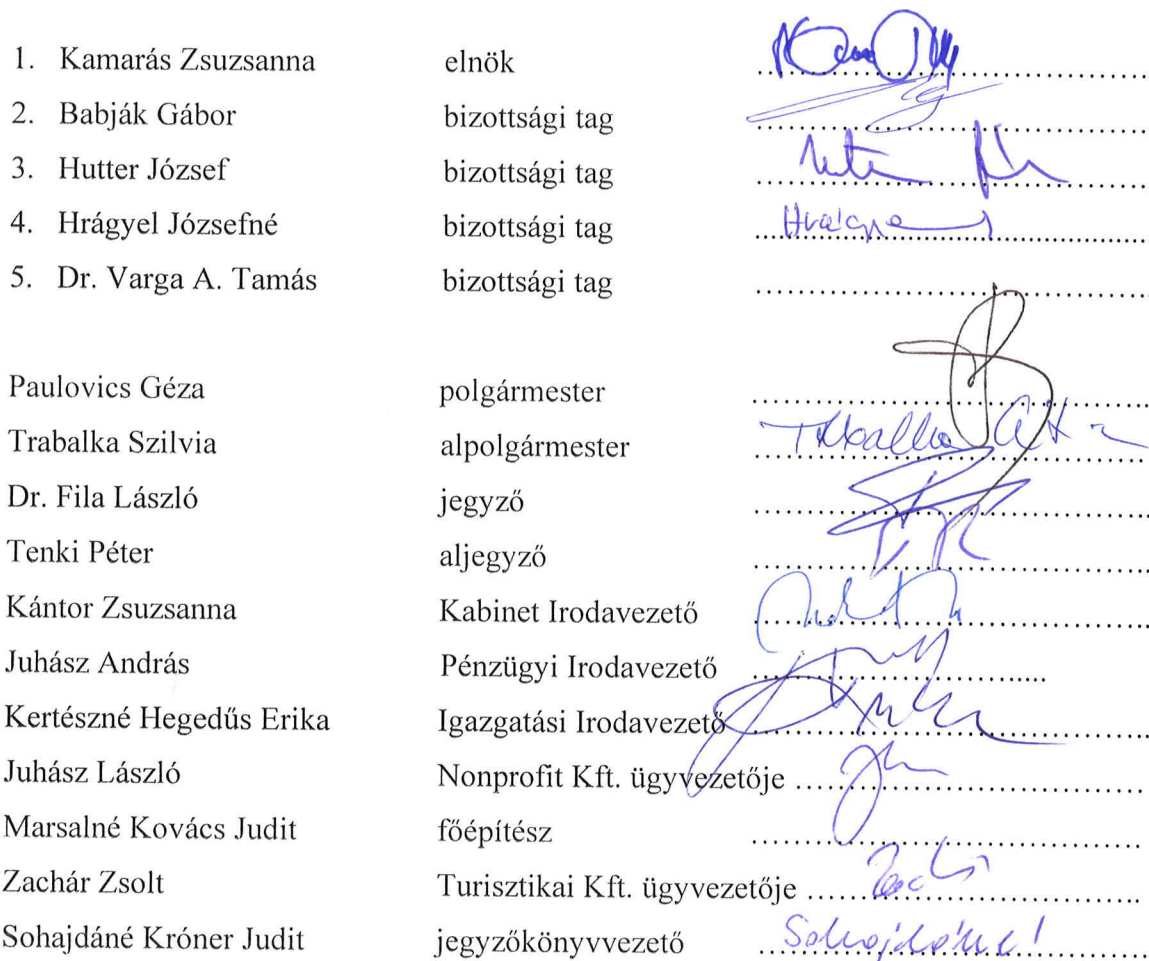 1. Kamarás Zsuzsanna elnök
2. Babják Gábor bizottsági tag
3. Hutter József bizottsági tag
4. Hrágyel Józsefné bizottsági tag
5. Dr. Varga A. Tamás bizottsági tag
Paulovics Géza polgármester
Trabalka Szilvia alpolgármester
Dr. Fila László jegyző
Tenki Péter aljegyző
Kántor Zsuzsanna Kabinet Irodavezető
Juhász András Pénzügyi Irodavezető
Kertészné Hegedűs Erika Igazgatási Irodavezető
Juhász László Nonprofit Kft. ügyvezetője
Marsalné Kovács Judit főépítész
Zachár Zsolt Turisztikai Kft. ügyvezetője
Sohajdáné Króner Judit jegyzőkönyvvezető